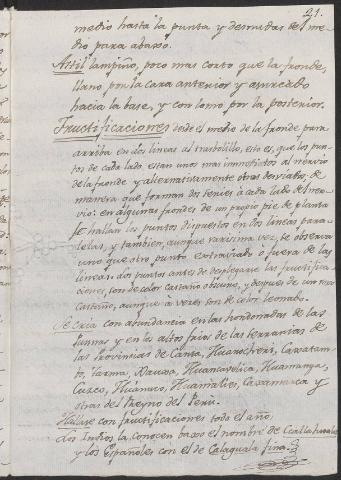 21.
medio hasta la punta y desnudas del me-
dio para abaxo.
Astil lampiño, poco mas corto que la fronde,
llano por la cara anterior y asurcado
hacia la base, y con lomo por la posterior.
Fructificaciones desde el medio de la fronde para
arriba en dos lineas al tresbolillo, esto es, que los pun-
tos de cada lado estan unos mas inmediatos al nervio
de la fronde y alternativamente otros desviados; de
manera que forman dos series á cada lado del ner-
vio: en algunas frondes de un propio pie de planta
se hallan los puntos dispuestos en dos lineas para-
lelas, y tambien, aunque rarisima vez, se observa
uno que otro punto extraviado ó fuera de las
lineas. Los puntos antes de desplegarse las fructifica-
ciones, son de color castaño obscuro, y despues de un roxo
castaño, aunque á veces son de color leonado.
Se cria con abundancia en las hondonadas de las
lomas y en los altos frios de las serranias de
las Provincias de Canta, Huarocheri, Caxatam-
bo, Tarma, Xauxa, Huancavelica, Huamanga,
Cuzco, Huánuco, Huamalies, Caxamarca y
otras del Reyno del Perú.
Hallase con fructificaciones todo el año.
Los Indios la conocen baxo el nombre de
y los Españoles con el de Calaguala fina.